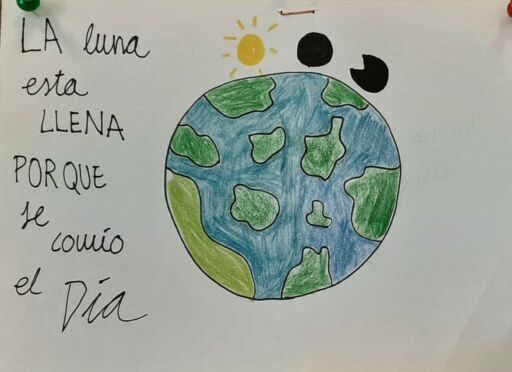 LA luna
esta
LLENA
PORQUE
se
comio
el Día